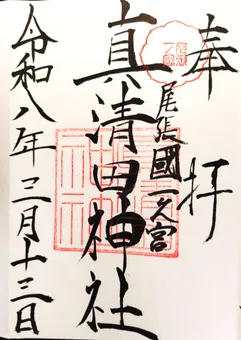 奉拝
尾張國一之宮
真清田神社
令和八年三月十三日